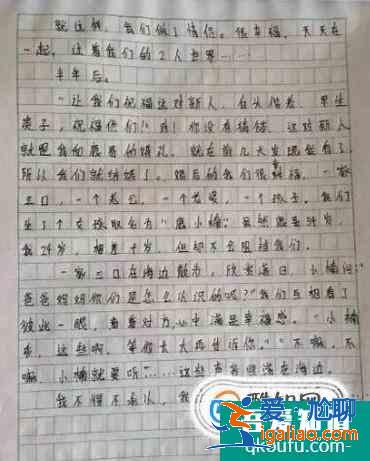 就这样，我们做了情侣。很幸福，天天在
一起，过着我们的2人世界……
半年后。
“让我们祝福这对新人，白头偕老，早生
贵子，祝福他们！”哈！你没有猜错，这对新人
就是我和鹿晗的婚礼，就在前几天发现我有了，
所以我们就结婚了。婚后的我们很幸福，一家
三口，一个老公，一个老婆，一个孩子，我们
生了个女孩取名为“鹿小楠”虽然鹿晗34岁，
我24岁，相差十岁，但却不会阻碍我们。
一家三口在海边散步，欣赏海日，小楠问：“
爸爸妈妈你们是怎么认识的呢？”我们互相看了
彼此一眼，看着对方，心中满是幸福感。“小楠
乖，这些啊，等你长大再告诉你。”“不嘛，不
嘛，小楠就要听”……这些声音回荡在海边。
我不得不承认，我
尴尬聊
qkour8.com